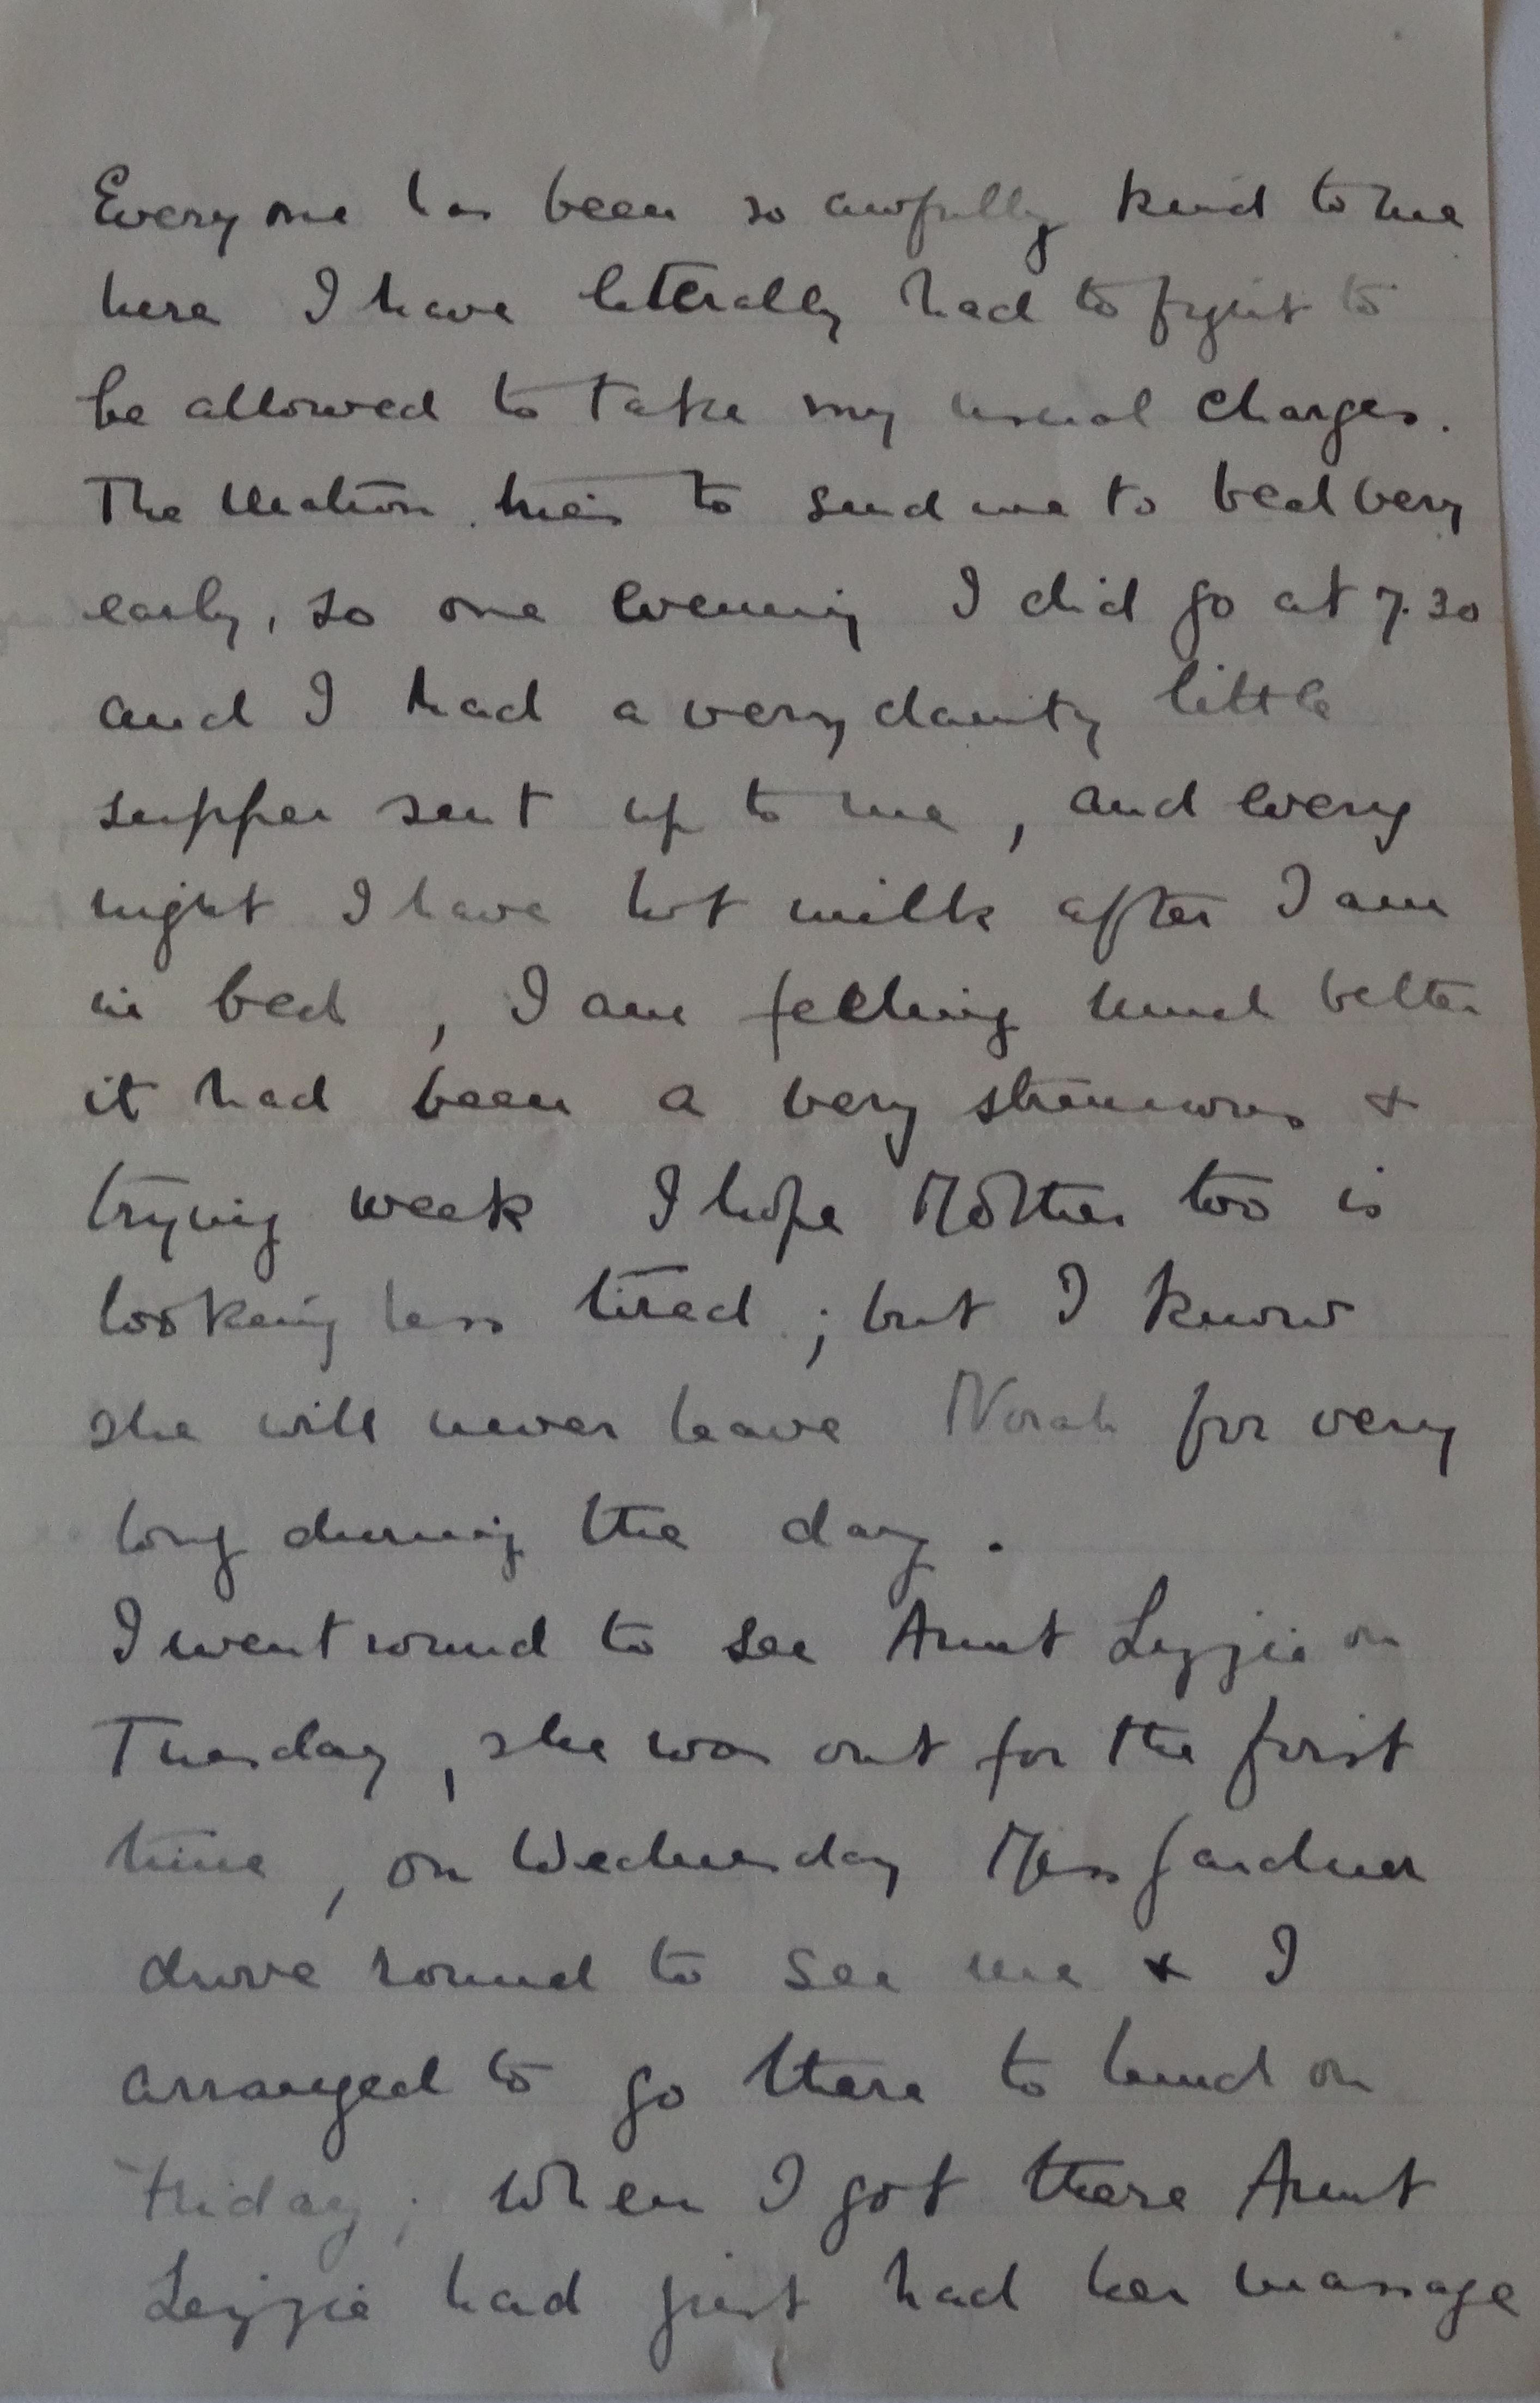 Everyone has been so awfully kind to me
here I have literally had to fight to
be allowed to take my usual charges.
The Matron tries to send me to bed very
early, so one evening I did go at 7.30
and I had a very dainty little
supper sent up to me, and every
night I have hot milk after I am
in bed, I am feeling much better
it had been a very strenuous &
trying week I hope Mother too is
looking less tired; but I know
she will never leave Norah for very
long during the day.
I went round to see Aunt Lizzie on
Tuesday, she was out for the first
time, on Wednesday Miss Gardner
drove round to see me & I
arranged to go there to lunch on
Friday; when I got there Aunt
Lizzie had just had her massage